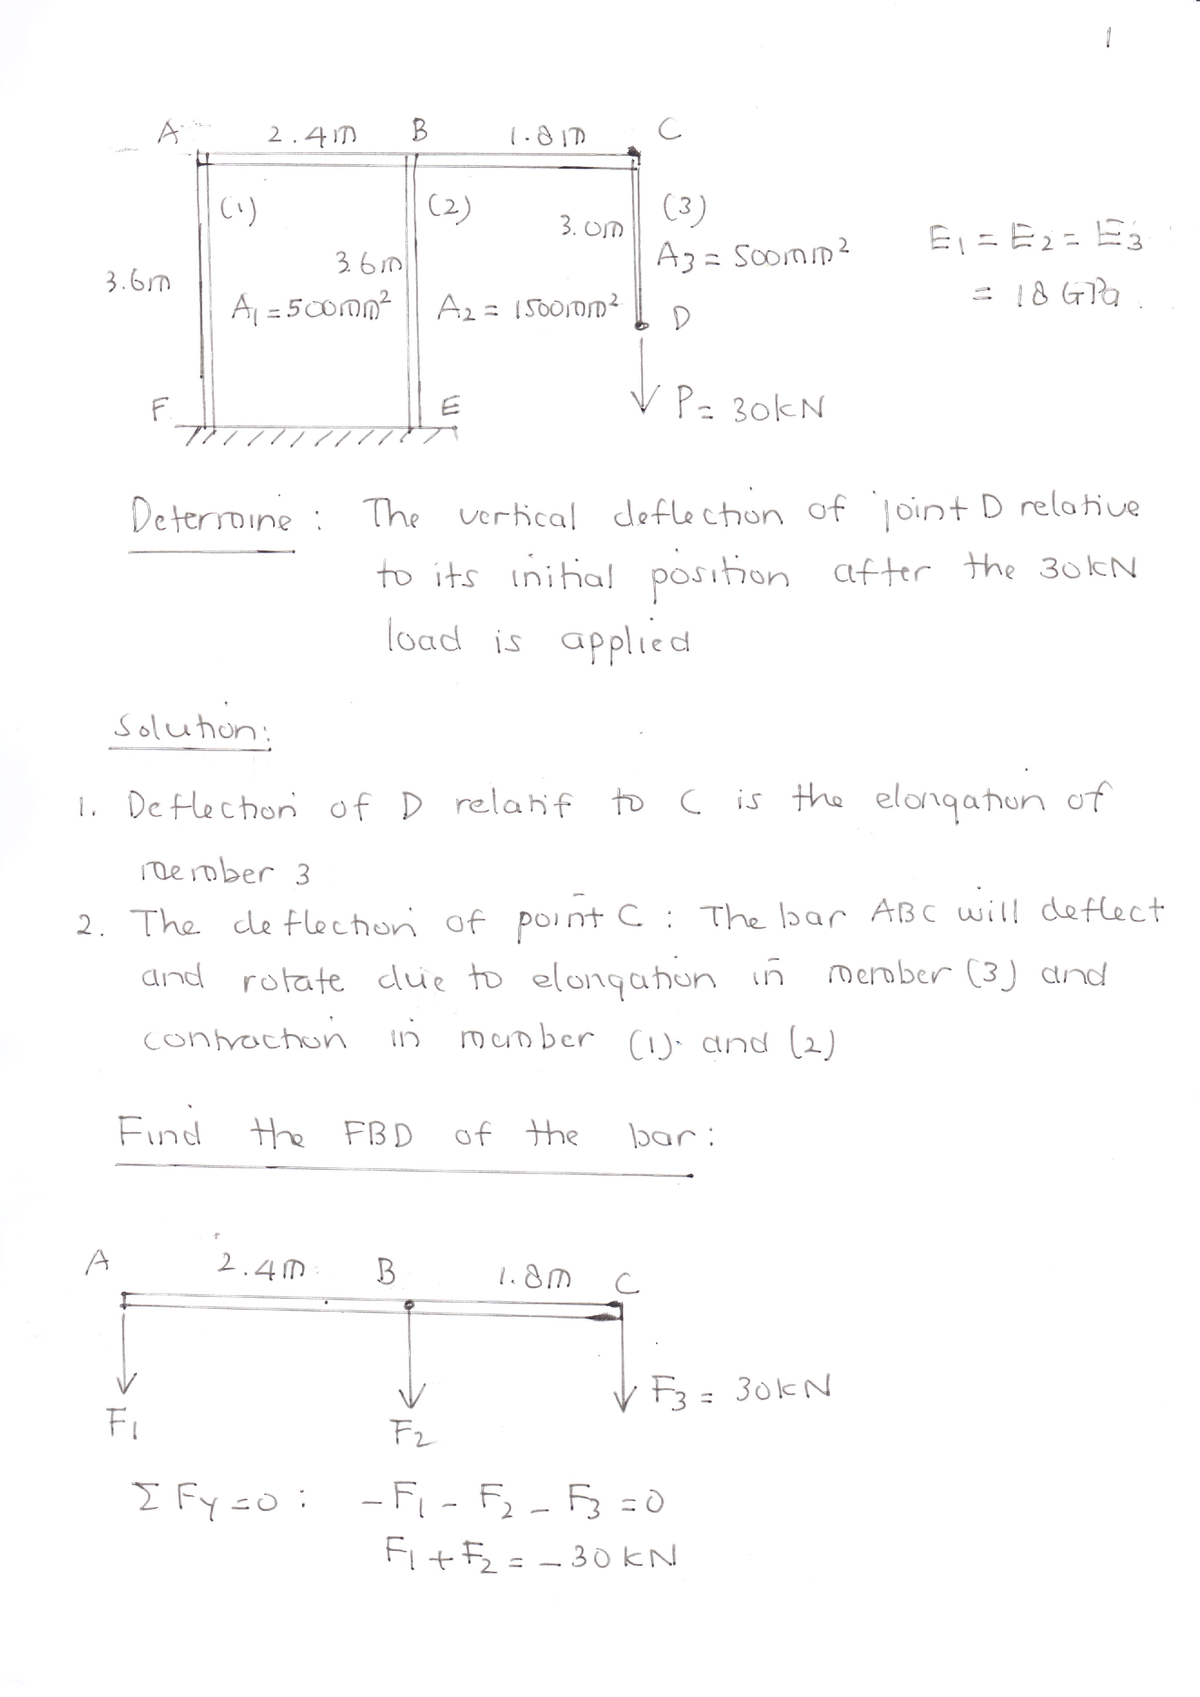 1
A 2.4m B 1.8m C
(1) (2) 3.0m (3)
3.6m 3.6m A3 = 500mm² E1 = E2 = E3
A1 = 500mm² A2 = 1500mm² D = 18 GPa.
F E P = 30kN
Determine : The vertical deflection of joint D relative
to its initial position after the 30kN
load is applied
Solution:
1. Deflection of D relatif to C is the elongation of
member 3
2. The deflection of point C : The bar ABC will deflect
and rotate due to elongation in member (3) and
contraction in member (1) and (2)
Find the FBD of the bar :
A 2.4m B 1.8m C
F3 = 30kN
F1 F2
Σ Fy = 0 : - F1 - F2 - F3 = 0
F1 + F2 = - 30 kN